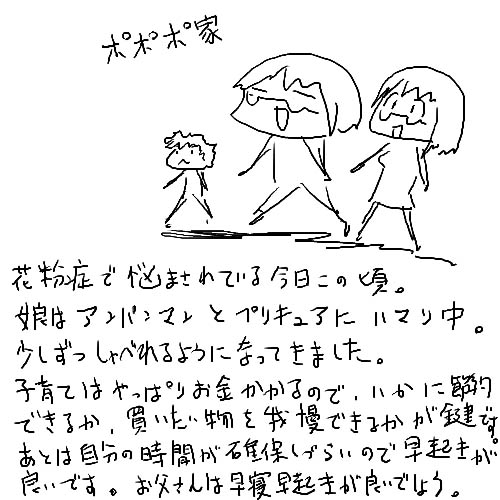 ポポポ家
花粉症で悩まされている今日この頃。
娘はアンパンマンとプリキュアにハマり中。
少しずつしゃべれるようになってきました。
子育てはやっぱりお金かかるので、いかに節約
できるか、買いたい物を我慢できるかが鍵です。
あとは自分の時間が確保しづらいので早起きが
良いです。お父さんは早寝早起きが良いでしょう。